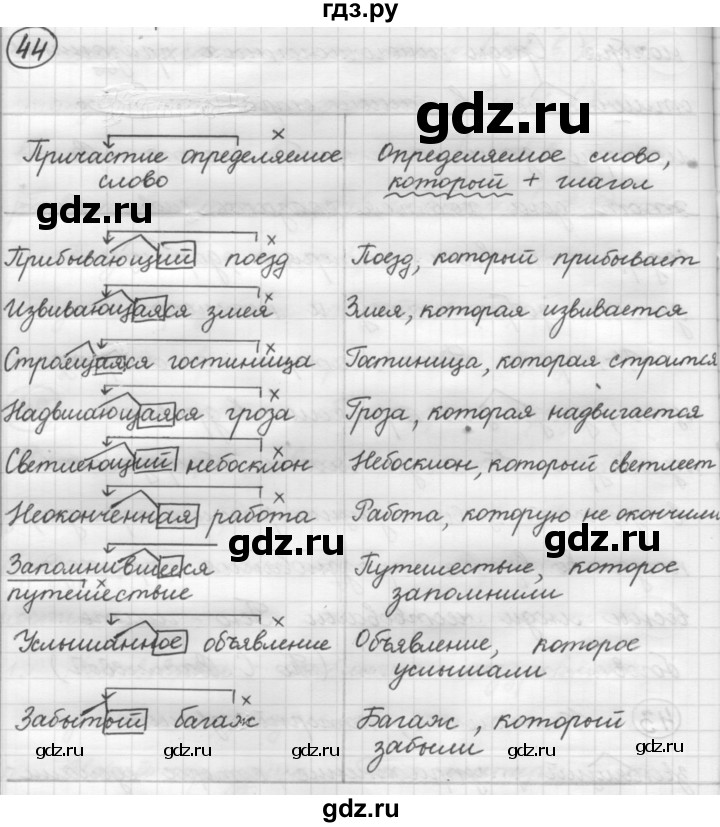 гдз.ру
44
gdz.ru
Причастие определяемое
слово
Определяемое слово,
который + глагол
gdz.ru
Прибывающий поезд
Поезд, который прибывает
Извивающаяся змея
Змея, которая извивается
Строящаяся гостиница
Гостиница, которая строится
Надвигающаяся гроза
Гроза, которая надвигается
Светлеющий небосклон
Небосклон, который светлеет
Неоконченная работа
Работа, которую не окончили
gdz.ru
gdz.ru
Запомнившееся
путешествие
Путешествие, которое
запомнили
Услышанное объявление
Объявление, которое
услышали
Забытый багаж
Багаж, который
забыли
gdz.ru gdz.ru gdz.ru gdz.ru gdz.ru gdz.ru
gdz.ru